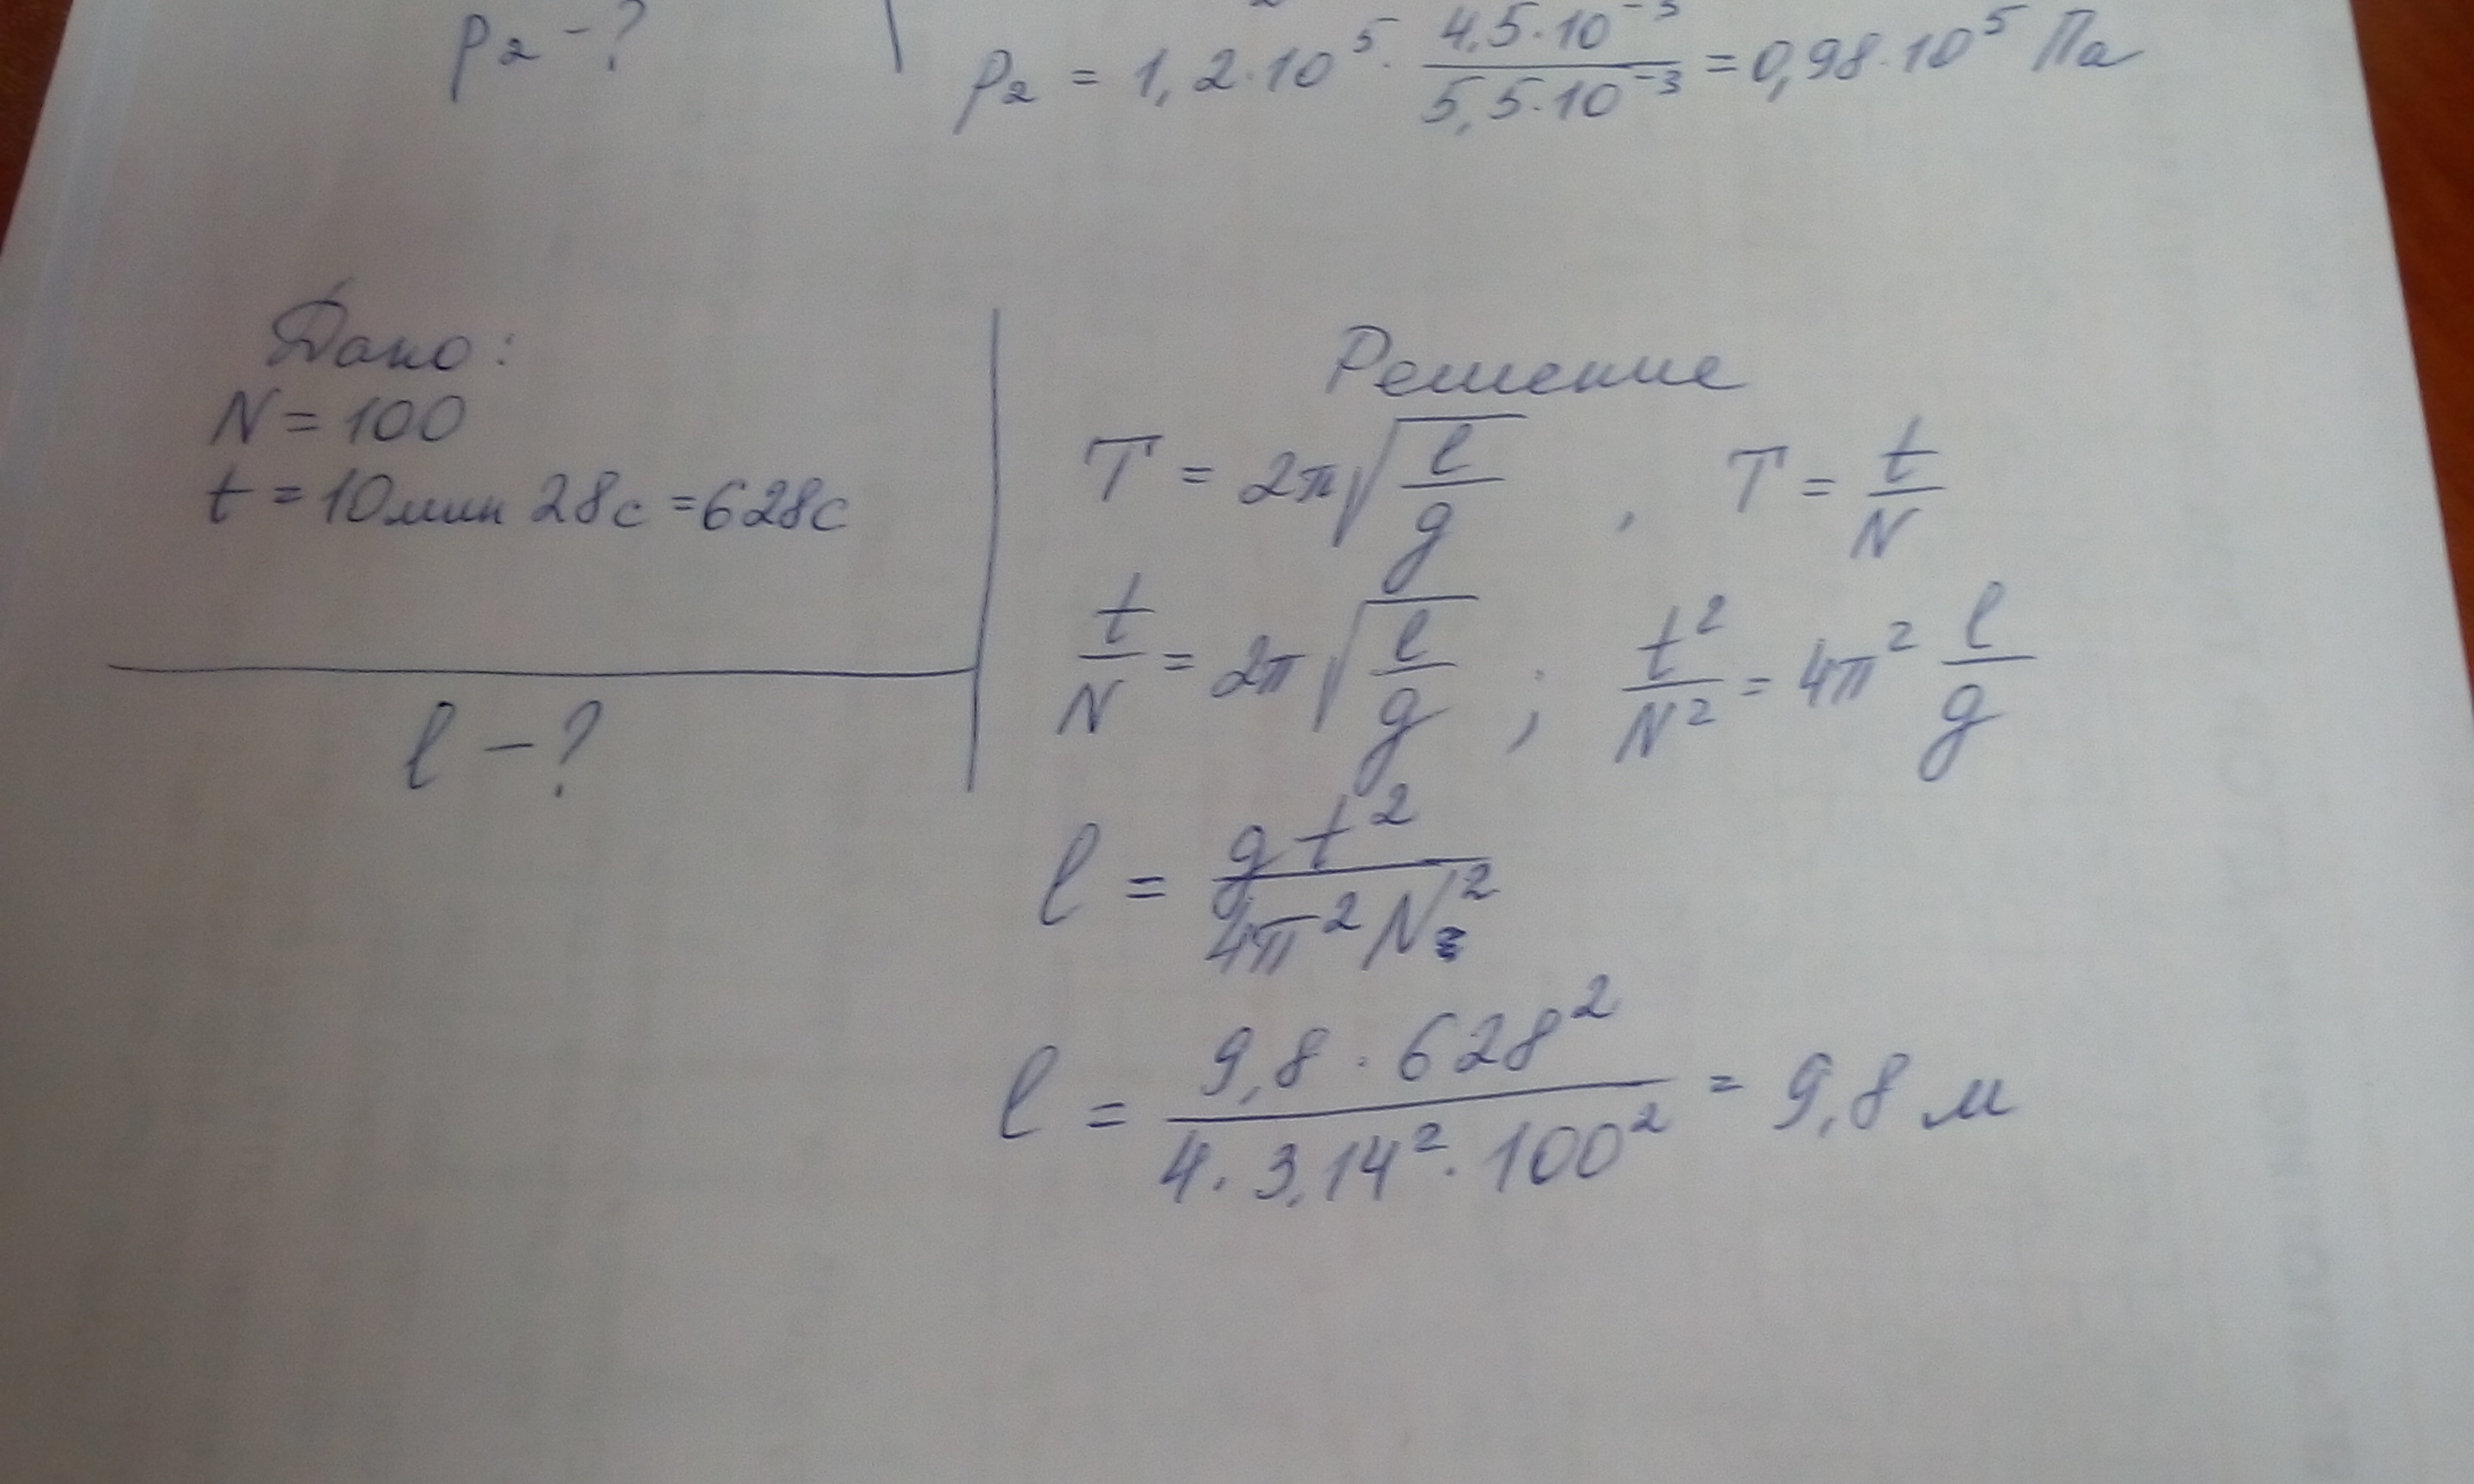 p₂ - ?
p₂ = 1,2·10⁵ · (4,5·10⁻³)/(5,5·10⁻³) = 0,98·10⁵ Па
Дано:
N = 100
t = 10мин 28с = 628с
l - ?
Решение
T = 2π√(l/g) , T = t/N
t/N = 2π√(l/g) ; t²/N² = 4π² l/g
l = gt²/(4π²N²)
l = (9,8 · 628²)/(4 · 3,14² · 100²) = 9,8 м